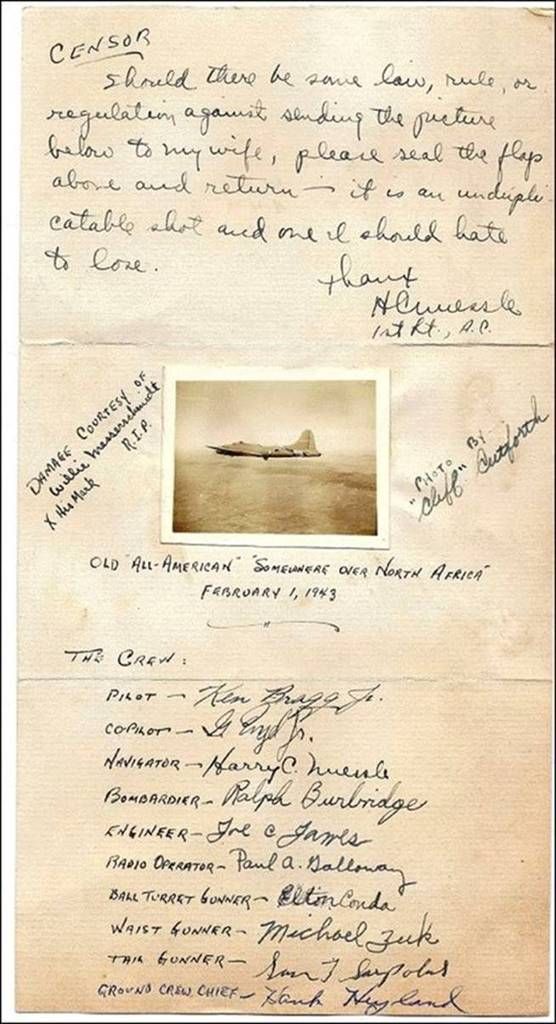 CENSOR
Should there be some law, rule, or
regulation against sending the picture
below to my wife, please seal the flap
above and return — it is an undupli-
catable shot and one I should hate
to lose.
thanx
HCNuessle
1st Lt., A.C.
DAMAGE COURTESY OF
Willie Messerschmidt
X His Mark R.I.P.
"PHOTO BY
Cliff" Cutforth
OLD "ALL-AMERICAN" "SOMEWHERE OVER NORTH AFRICA"
FEBRUARY 1, 1943
THE CREW:
PILOT — Ken Bragg Jr.
COPILOT — G Jr.
NAVIGATOR — Harry C. Nuessle
BOMBARDIER — Ralph Burbridge
ENGINEER — Joe C James
RADIO OPERATOR — Paul A. Galloway
BALL TURRET GUNNER — Elton Conda
WAIST GUNNER — Michael Zuk
TAIL GUNNER — Sam T Sarpolus
GROUND CREW CHIEF — Hank Hyland